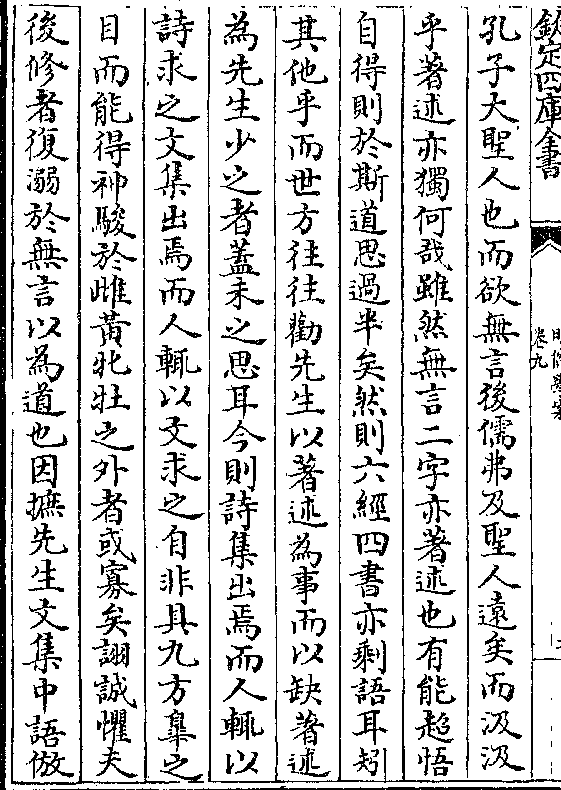 欽定四庫全書
卷九
孔子大聖人也而欲無言後儒弗及聖人遠矣而汲汲
乎著述亦獨何哉雖然無言二字亦著述也有能超悟
自得則於斯道思過半矣然則六經四書亦剩語耳矧
其他乎而世方往往勸先生以著述為事而以缺著述
為先生少之者蓋未之思耳今則詩集出焉而人輒以
詩求之文集出焉而人輒以文求之自非具九方臯之
目而能得神駿於雌黃牝牡之外者或寡矣詡誠懼夫
後修者復溺於無言以為道也因摭先生文集中語倣